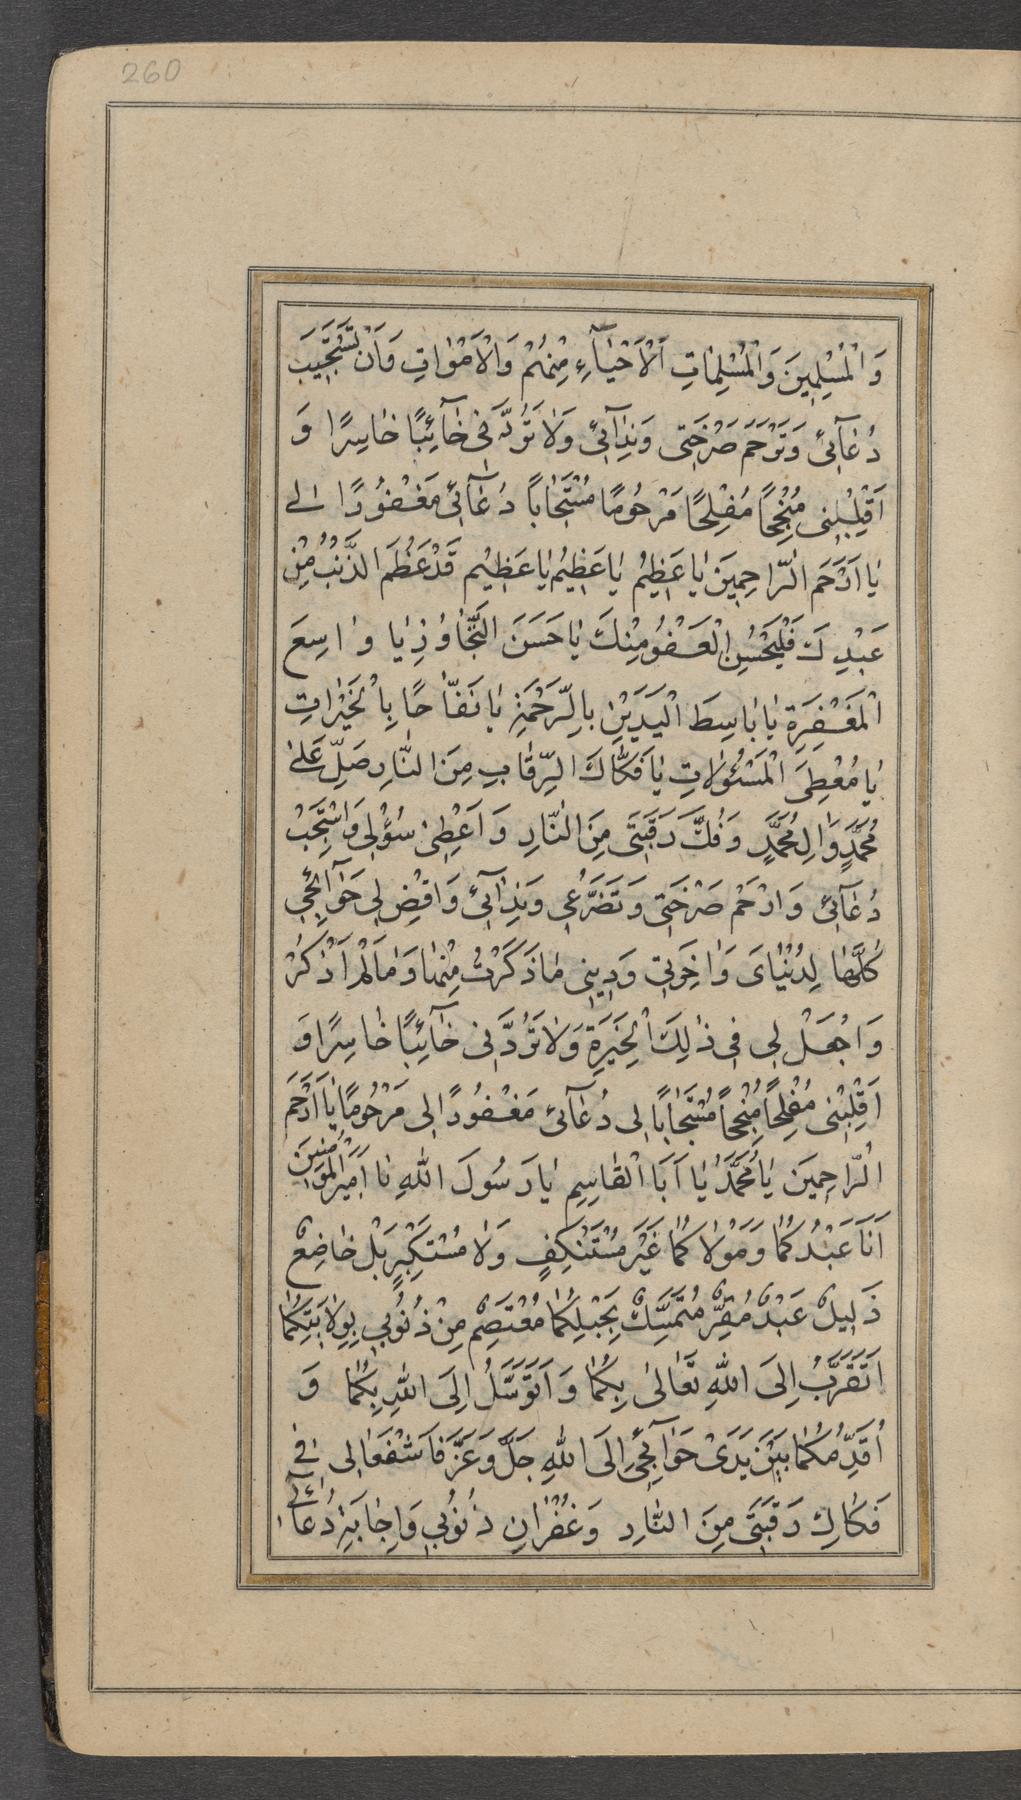 260
وَالْمُسْلِمِينَ وَالْمُسْلِمٰاتِ اَلْاَحْيٰآءِ مِنْهُمْ وَالْاَمْوٰاتِ وَاَنْ تَسْتَجِيبَ
دُعٰآئِیْ وَتَرْحَمَ صَرْخَتِی وَنِدٰآئِیْ وَلٰا تَرُدَّنِی خٰآئِبًا خٰاسِرًا وَ
اَقْلِبْنِی مُنْجِحًا مُفْلِحًا مَرْحُومًا مُسْتَجٰاباً دُعٰآئِیْ مَغْفُورًا لِی
يٰا اَرْحَمَ الرّٰاحِمِينَ يٰا عَظِيمُ يٰا عَظِيمُ يٰا عَظِيم قَدْ عَظُمَ الذَّنْبُ مِنْ
عَبْدِكَ فَلْيَحْسُنِ الْعَفْوُ مِنْكَ يٰا حَسَنَ التَّجٰاوُزِ يٰا وٰاسِعَ
الْمَغْفِرَةِ يٰا بٰاسِطَ الْيَدَيْنِ بِالرَّحْمَةِ يٰا نَفّٰاحًا بِالْخَيْرٰاتِ
يٰا مُعْطِیَ الْمَسْئُولٰاتِ يٰا فَكّٰاكَ الرِّقٰابِ مِنَ النّٰارِ صَلِّ عَلٰی
مُحَمَّدٍ وَاٰلِ مُحَمَّدٍ وَفُكَّ رَقَبَتِی مِنَ النّٰارِ وَاَعْطِنِی سُؤْلِی وَاسْتَجِبْ
دُعٰآئِیْ وَارْحَمْ صَرْخَتِی وَتَضَرُّعِی وَنِدٰآئِیْ وَاقْضِ لِی حَوٰآئِجِی
كُلَّهٰا لِدُنْيٰایَ وَاٰخِرَتِی وَدِينِی مٰا ذَكَرْتُ مِنْهٰا وَمٰا لَمْ اَذْكُرْ
وَاجْعَلْ لِی فِی ذٰلِكَ الْخِيَرَةِ وَلٰا تَرُدَّنِی خٰآئِبًا خٰاسِرًا وَ
اَقْلِبْنِی مُفْلِحًا مُنْجِحًا مُسْتَجٰابًا لِی دُعٰآئِیْ مَغْفُورًا لِی مَرْحُومًا يٰا اَرْحَمَ
الرّٰاحِمِينَ يٰا مُحَمَّدُ يٰا اَبَا الْقٰاسِمِ يٰا رَسُولَ اللهِ يٰا اَمِيرَ الْمُؤْمِنِينَ
اَنَا عَبْدُكُمٰا وَمَوْلٰاكُمٰا غَيْرَ مُسْتَنْكِفٍ وَلٰا مُسْتَكْبِرٍ بَلْ خٰاضِعٌ
ذَلِيلٌ عَبْدٌ مُقِرٌّ مُتَمَسِّكٌ بِحَبْلِكُمٰا مُعْتَصِمٌ مِنْ ذُنُوبِی بِوِلٰايَتِكُمٰا
اَتَقَرَّبُ اِلَی اللهِ تَعٰالٰی بِكُمٰا وَاَتَوَسَّلُ اِلَی اللهِ بِكُمٰا وَ
اُقَدِّمُكُمٰا بَيْنَ يَدَیْ حَوٰآئِجِیْ اِلَی اللهِ جَلَّ وَعَزَّ فَاشْفَعٰا لِی فِی
فَكٰاكِ رَقَبَتِی مِنَ النّٰارِ وَغُفْرٰانِ ذُنُوبِی وَاِجٰابَةِ دُعٰآئِی